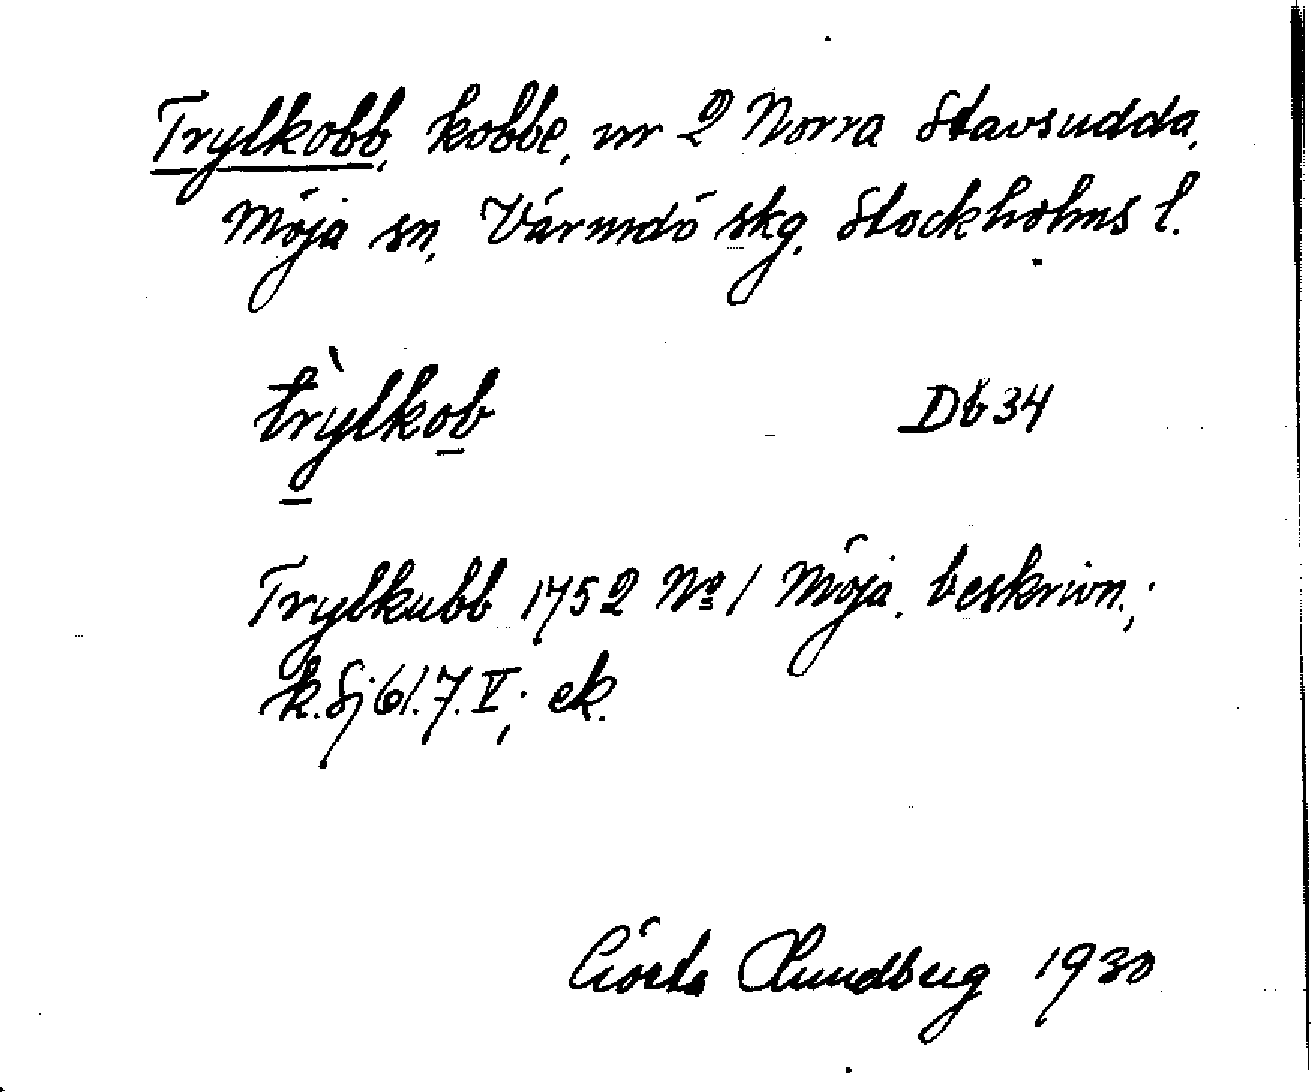 Trylkobb, kobbe, nr 2 Norra Stavsudda,
Möja sn, Värmdö skg. Stockholms l.
tr̀ylkob Db 34
Trylkubb 1752 No 1 Möja. beskrivn.;
k. Sj 61.7.V; ek.
Gösta Lundberg 1930